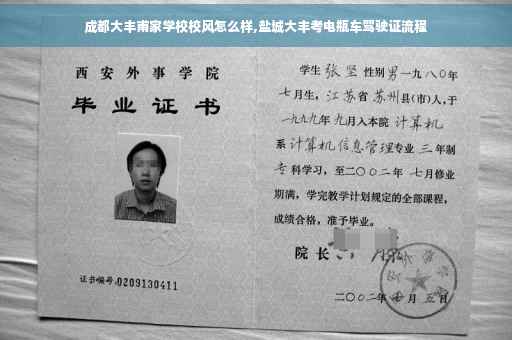 成都大丰甫家学校校风怎么样,盐城大丰考电瓶车驾驶证流程
西安外事学院
毕业证书
证书编号:0209130411
学生张坚性别男一九八〇年
七月生,江苏省苏州县(市)人,于
一九九九年九月入本院计算机
系计算机信息管理专业三年制
专科学习,至二〇〇二年七月修业
期满,学完教学计划规定的全部课程,
成绩合格,准予毕业。
院长
二〇〇二年七月五日